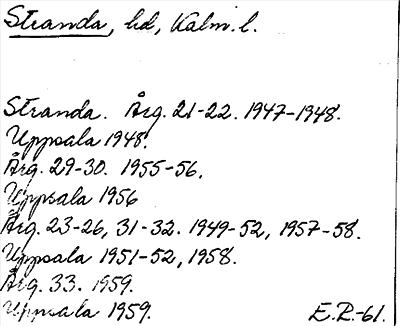 Stranda, hd, Kalm. l.
Stranda. Årg. 21-22. 1947-1948.
Uppsala 1948.
Årg. 29-30. 1955-56.
Uppsala 1956
Årg. 23-26, 31-32. 1949-52, 1957-58.
Uppsala 1951-52, 1958.
Årg. 33. 1959.
Uppsala 1959. E.R.-61.